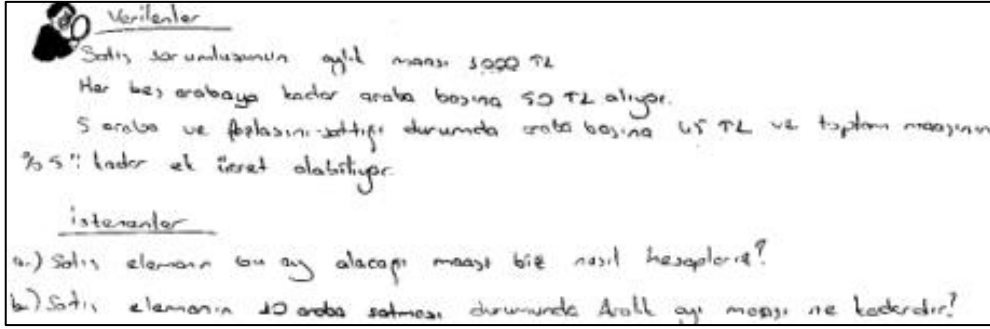 Verilenler
Satış sorumlusunun aylık maaşı 1000 TL
Her beş arabaya kadar araba başına 50 TL alıyor.
5 araba ve fazlasını sattığı durumda araba başına 45 TL ve toplam maaşının
%5'i kadar ek ücret alabiliyor.
İstenenler
a.) Satış elemanın bu ay alacağı maaşı biz nasıl hesaplarız?
b.) Satış elemanın 10 araba satması durumunda Aralık ayı maaşı ne kadardır?